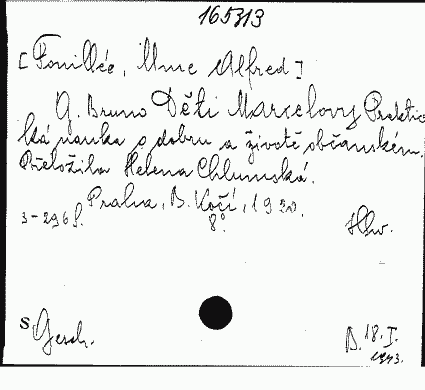 165313
[Fouillée, Mme Alfred]
G. Bruno Děti Marcelovy Praktic
ká nauka o dobru a životě občanském.
Přeložila Helena Chlumská.
Praha, B. Kočí, 1920.
3-296 s. 8°.
S. Gesch.
B. 18. I.
1943.